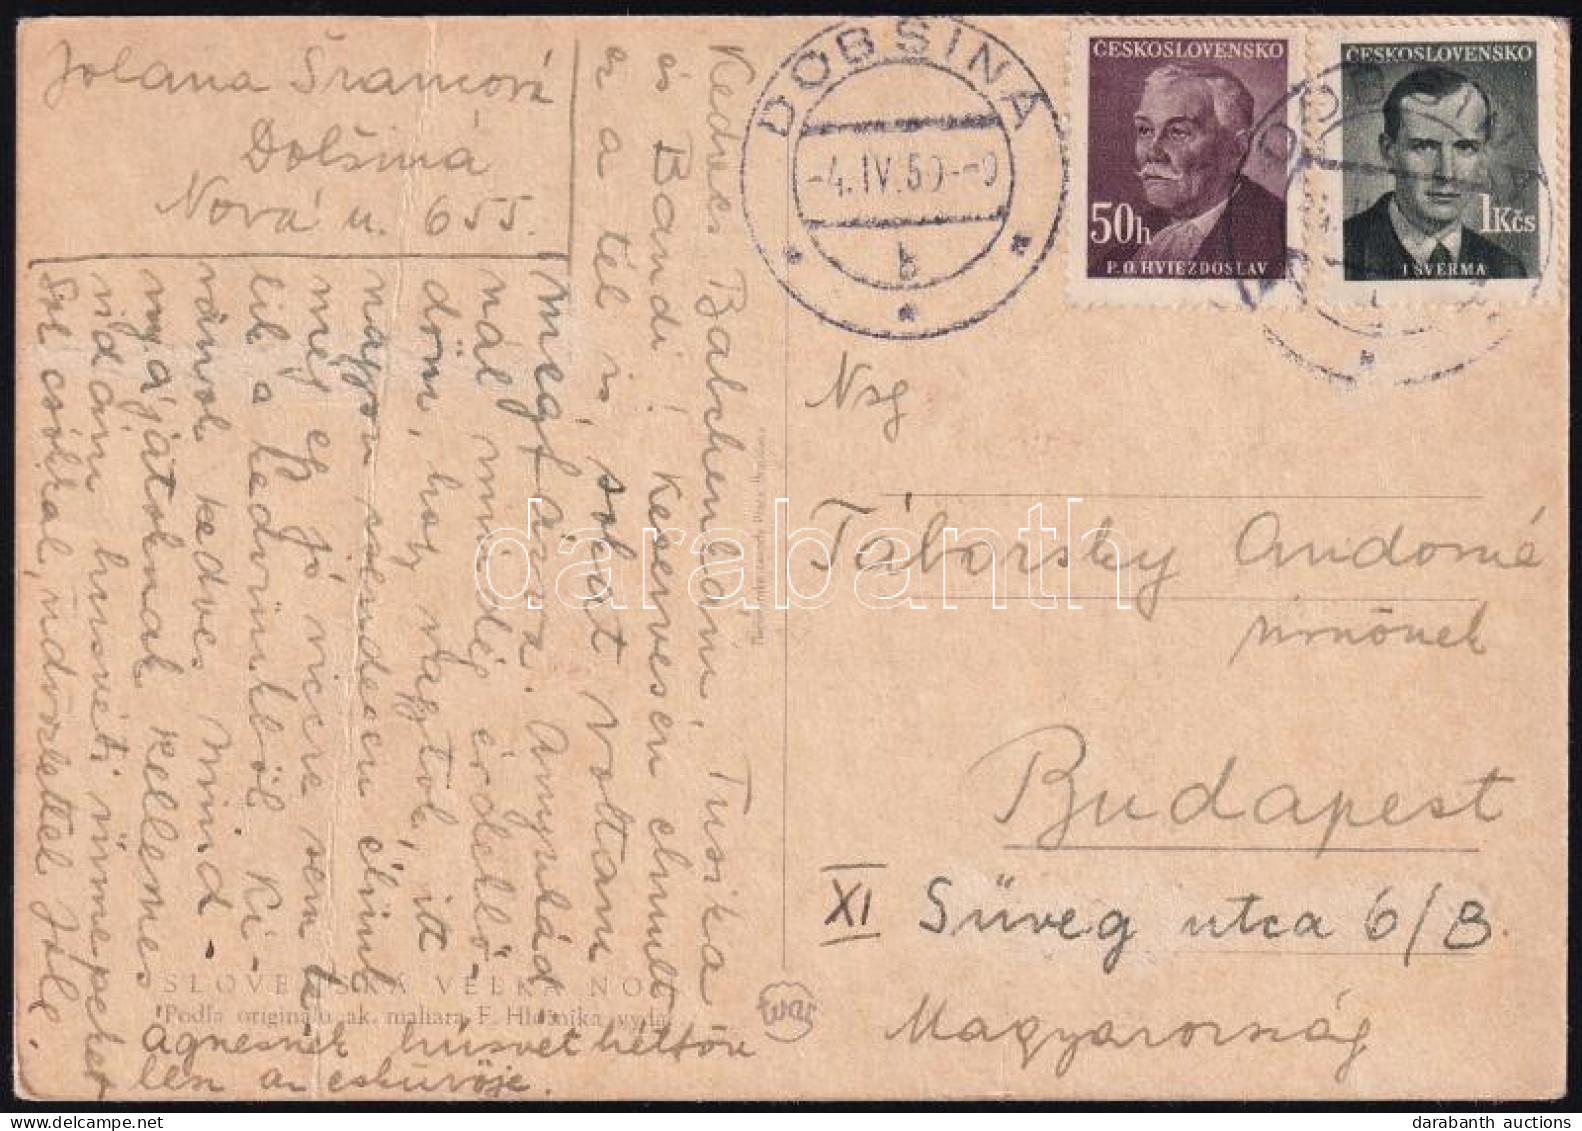 Jolana Šrancová
Dobšiná
Nová u. 655.
Kedves Babchenkám, Tusika
és Bandi! Keservesen elmult
ez a tél is, sokat voltam
megfázva. Annyukád
nál mindég érdeklő-
döm, hogy vagytok, itt
nagyon csendesen élünk
még egy jó viccre sem te
lik a kedvünkből. Ki-
vánok kedves mind-
nyájatoknak kellemes
vidám husvéti ünnepeket
Sok csókkal, üdvözlettel Jole.
Ágnesnek húsvét héttőn
lesz az esküvője.
SLOVENSKÁ VEĽKÁ NOC
Podľa originálu ak. maliara F. Hložníka vydal
DOBŠINÁ
-4.IV.50.-9
b
ČESKOSLOVENSKO
50h
P.O.HVIEZDOSLAV
ČESKOSLOVENSKO
1Kčs
J ŠVERMA
Nsg
Táborsky Andorné
úrnőnek
Budapest
XI Süveg utca 6/B.
Magyarország
darabanth
darabanth auctions